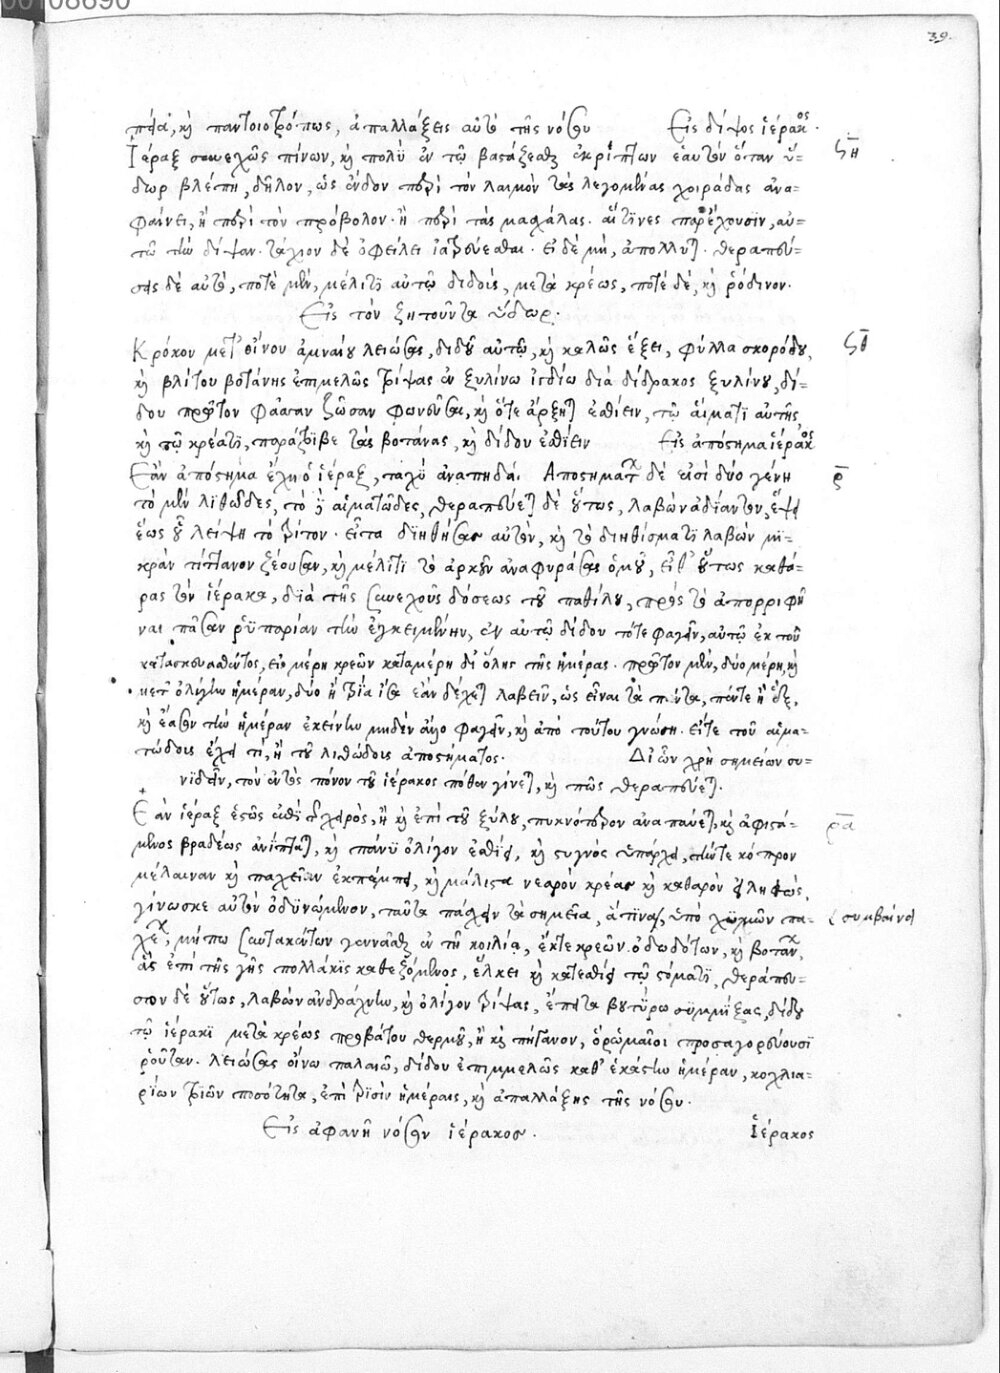 00108690
39.
πτερὰ, καὶ παντοιοτρόπως, ἀπαλλάξεις αὐτὸν τῆς νόσου Εἰς δίψος ἱέρακος.
Ἱέραξ συνεχῶς πίνων, καὶ πολὺ ἐν τῷ βαστάζεσθαι ἐκρίπτων ἑαυτὸν ὅταν ὕ=
δωρ βλέπῃ, δῆλον, ὡς ἔνδον περὶ τὸν λαιμὸν τὰς λεγομένας χοιράδας ἀνα=
φαίνει, ἢ περὶ τὸν πρόβολον. ἢ περὶ τὰς μασχάλας. αἵτϊνες παρέχουσϊν, αὐ=
τῷ τὴν δίψαν. τάχιον δὲ ὀφείλει ἰατρεύεσθαι. εἰ δὲ μὴ, ἀπόλλυται. θεραπεύ=
σεις δὲ αὐτὸν, ποτὲ μὲν, μέλιτϊ αὐτῷ διδοὺς, μετὰ κρέως, ποτὲ δὲ, καὶ ῥόδινον.
Εἰς τὸν ζητοῦντα ὕδωρ.
Κρόκον μετ' οἴνου ἀμναίου λειώσας, δίδου αὐτῷ, καὶ καλῶς ἕξει, φύλλα σκορόδου,
καὶ βλίτου βοτάνης ἐπιμελῶς τρίψας ἐν ξυλίνω ἰγδίω διὰ δίδρακος ξυλίνου, δί=
δου πρῶτον φάσσαν ζῶσαν φωνοῦσαν, καὶ ὅτε ἄρξηται ἐσθίειν, τῷ αἵματϊ αὐτῆς
καὶ τῷ κρέατϊ, παράτριβε τὰς βοτάνας, καὶ δίδου ἐσθίειν Εἰς ἀπόστημα ἱέρακος
Ἐὰν ἀπόστημα ἔχη ὁ ἱέραξ, ταχὺ ἀναπηδᾶ. Ἀποστημάτων δέ εἰσι δύο γένη
τὸ μὲν λϊθῶδες, τὸ δὲ αἱματῶδες, θεραπεύεται δὲ οὕτως, λαβὼν ἀδίαντον, ἕψει
ἕως οὗ λείψη τὸ τρίτον. εἶτα διηθήσας αὐτὸν, καὶ τὸ διηθίσματϊ λαβὼν μϊ=
κρὰν τίτανον ζέουσαν, καὶ μέλιτϊ τὸ ἀρκοῦν ἀναφυράσας ὁμοῦ, εἶθ' οὕτως καθά=
ρας τὸν ἱέρακα, διὰ τῆς συνεχοῦς δόσεως τοῦ παθίλου, πρὸς τὸ ἀπορριφῆ
ναι πᾶσαν ῥϋπορίαν τὴν ἐγκειμένην, ἐν αὐτῷ δίδου τότε φαγεῖν, αὐτῷ ἐκ τοῦ
κατασκευασθέντος, εἰς μέρη κρεῶν καταμέρη δι' ὅλης τῆς ἡμέρας. πρῶτον μὲν, δύο μέρη, καὶ
μετ' ὀλίγην ἡμέραν, δύο ἢ τρία ἵνα ἐὰν δέχεται λαβεῖν, ὡς εἶναι τὰ πάντα, πέντε ἢ ἕξ,
καὶ ἔασον τὴν ἡμέραν ἐκείνην μηδὲν ἄλλο φαγεῖν, καὶ ἀπὸ τούτου γνώση. εἴτε τοῦ αἱμα=
τώδους ἔχει τι, ἢ τοῦ λιθώδους ἀποστήματος. Δι' ὧν χρὴ σημείων συ=
νϊδεῖν, τὸν ἐντὸς πόνον τοῦ ἱέρακος πόθεν γίνεται, καὶ πῶς θεραπεύεται.
Ἐὰν ἱέραξ ἑστὼς ἐπὶ χειρὸς, ἢ καὶ ἐπὶ τοῦ ξύλου, πυκνότερον ἀναπαύεται, καὶ ἀφιστά=
μενος βραδέως ἀνίπταται, καὶ πάνϋ ὀλίγον ἐσθίει, καὶ στυγνὸς ὑπάρχει, πάντε κόπρον
μέλαιναν καὶ παχεῖαν ἐκπέμπει, καὶ μάλιστα νεαρὸν κρέας καὶ καθαρὸν εἰληφὼς,
γίνωσκε αὐτὸν ὀδϋνώμενον, ταῦτα πάσχειν τὰ σημεῖα, ἅτϊνα, ὑπὸ χϋμῶν πα= (συμβαίνει)
χε, μήπω συντακέντων γεννᾶσθαι ἐν τῇ κοιλίᾳ, ἔκ τε κρεῶν ὀδωδότων, καὶ βοτανῶν,
ἃς ἐπὶ τῆς γῆς πολλάκϊς καθεζόμενος, ἕλκει καὶ κατεσθίει τῷ στόματϊ, θεράπευ=
σον δὲ οὕτως, λαβὼν ἀνδράχνην, καὶ ὀλίγον τρίψας, ἔπειτα βουτύρω σϋμμΐξας, δίδου
τῷ ἱέρακϊ μετὰ κρέως προβάτου θερμοῦ, ἢ καὶ πήγανον, ὃ ῥωμαῖοι προσαγορεύουσϊ
ῥοῦταν. λειώσας οἴνω παλαιῷ, δίδου ἐπιμμελῶς καθ' ἑκάστην ἡμέραν, κοχλια=
ρίων τριῶν ποσότητα, ἐπὶ τρϊσὶν ἡμέραις, καὶ ἀπαλλάξης τῆς νόσου.
Εἰς ἀφανῆ νόσον ἱέρακος. Ἱέρακος